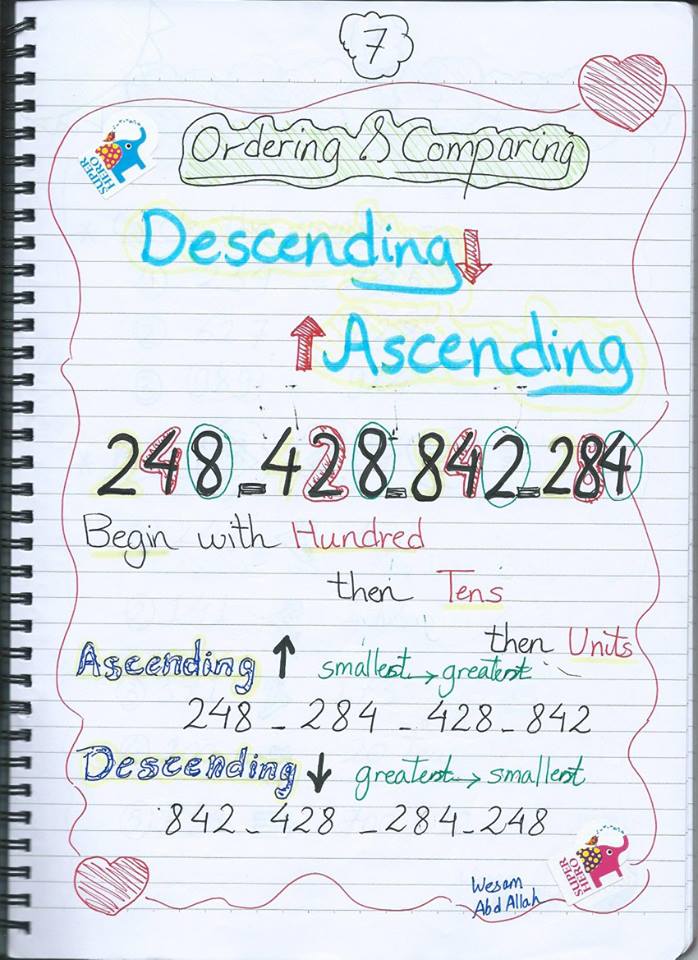 7
Ordering & Comparing
SUPER HERO
Descending ↓
↑ Ascending
248 - 428 - 842 - 284
Begin with Hundred
then Tens
then Units
Ascending ↑ smallest → greatest
248 - 284 - 428 - 842
Descending ↓ greatest → smallest
842 - 428 - 284 - 248
SUPER HERO
Wesam
Abd Allah